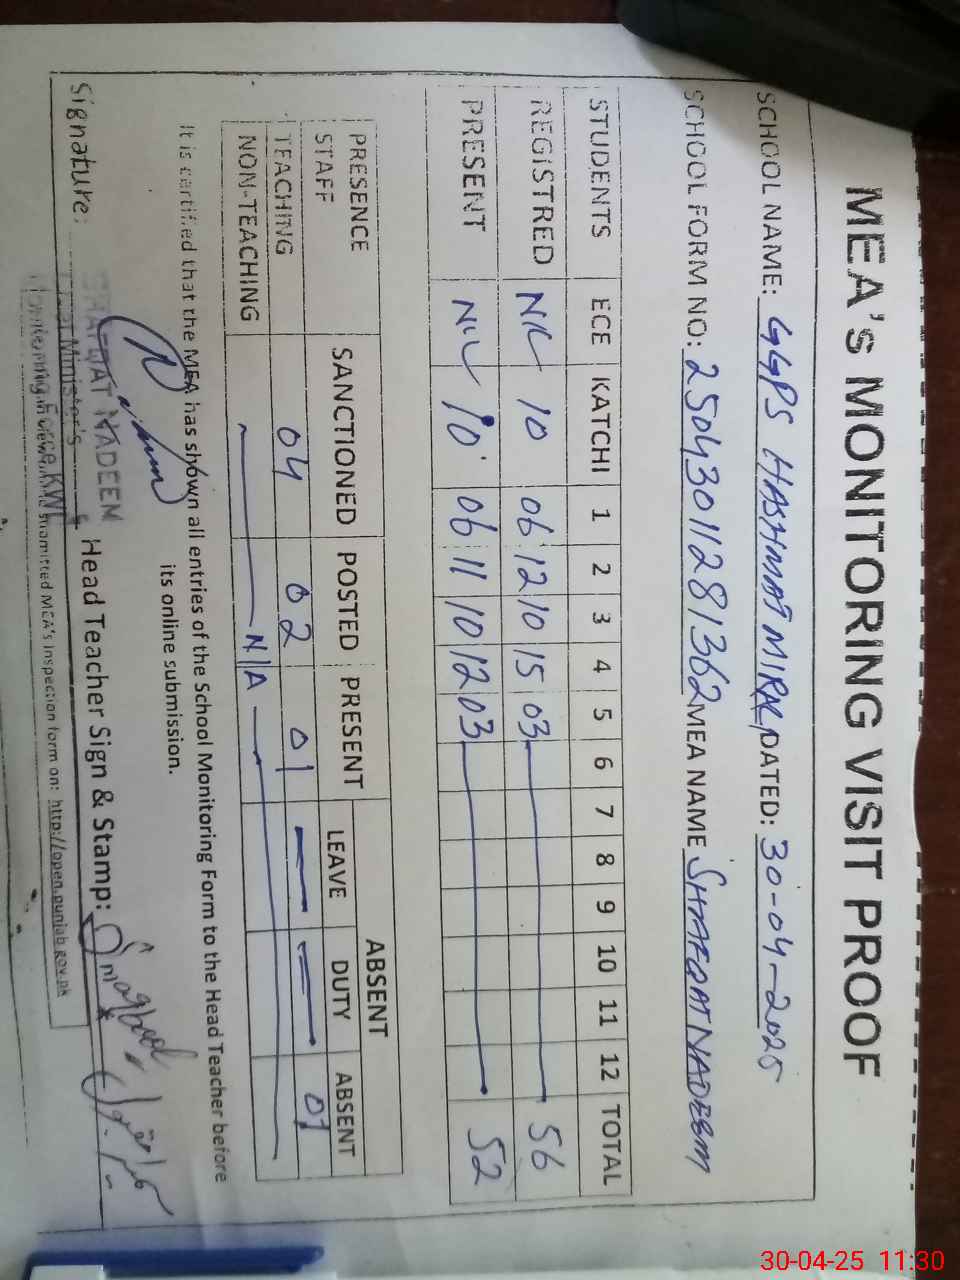 MEA's MONITORING VISIT PROOF
SCHOOL NAME: GGPS HASHMAT MIRAL DATED: 30-04-2025
SCHOOL FORM NO: 25043011281362 MEA NAME SHAFQAT NADEEM
STUDENTS ECE KATCHI 1 2 3 4 5 6 7 8 9 10 11 12 TOTAL
REGISTRED NIL 10 06 12 10 15 03 56
PRESENT NIL 10 06 11 10 12 03 52
PRESENCE SANCTIONED POSTED PRESENT ABSENT
STAFF LEAVE DUTY ABSENT
TEACHING 04 02 01 — — 01
NON-TEACHING — N/A —
It is certified that the MEA has shown all entries of the School Monitoring Form to the Head Teacher before
its online submission.
Signature: SHAFQAT NADEEM Head Teacher Sign & Stamp:
Minister's
Monitoring Force KWL
submitted MEA's Inspection form on: http://open.punjab.gov.pk
30-04-25 11:30